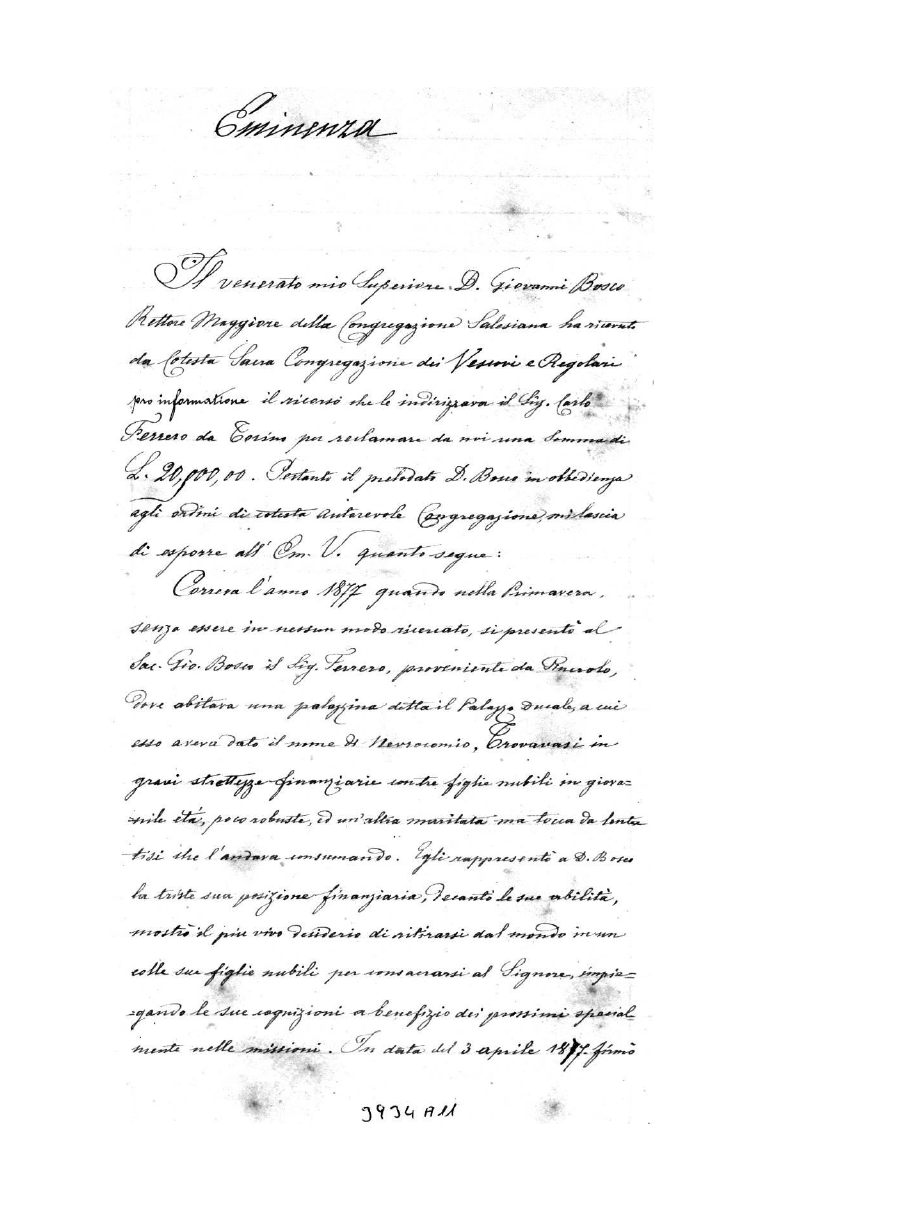 Eminenza
Il venerato mio Superiore D. Giovanni Bosco
Rettore Maggiore della Congregazione Salesiana ha ricevuto
da Cotesta Sacra Congregazione dei Vescovi e Regolari
pro informatione il ricorso che le indirizzava il Sig. Carlo
Ferrero da Torino per reclamare da noi una somma di
L. 20,000,00. Pertanto il prelodato D. Bosco in obbedienza
agli ordini di cotesta autorevole Congregazione, mi lascia
di esporre all' Em. V. quanto segue:
Correva l'anno 1877 quando nella Primavera,
senza essere in nessun modo ricercato, si presentò al
Sac. Gio. Bosco il Sig. Ferrero, proveniente da Pinerolo,
dove abitava una palazzina detta il Palazzo Ducale, a cui
esso aveva dato il nome di Nevrocomio, Trovavasi in
gravi strettezze finanziarie con tre figlie nubili in giova=
=nile età, poco robuste, ed un'altra maritata ma tocca da lenta
tisi che l'andava consumando. Egli rappresentò a D. Bosco
la triste sua posizione finanziaria, decantò le sue abilità,
mostrò il più vivo desiderio di ritirarsi dal mondo in un
colle sue figlie nubili per consacrarsi al Signore, impie=
=gando le sue cognizioni a benefizio dei prossimi special=
mente nelle missioni. In data del 3 aprile 1877 firmò
3934 A11